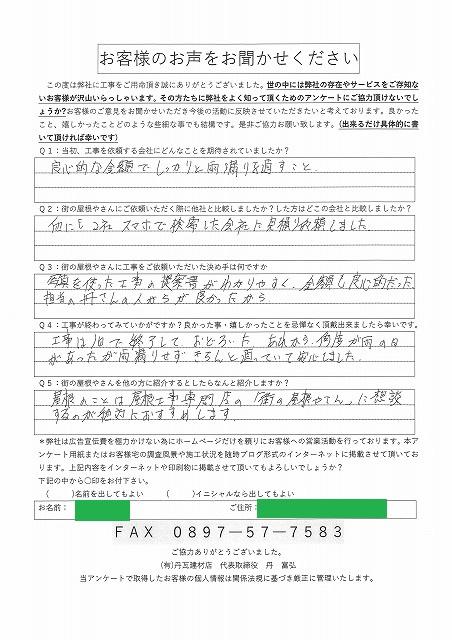 お客様のお声をお聞かせください
この度は弊社に工事をご用命頂き誠にありがとうございました。世の中には弊社の存在やサービスをご存知な
いお客様が沢山いらっしゃいます。その方たちに弊社をよく知って頂くためのアンケートにご協力頂けないでし
ょうか?お客様のご意見をお聞かせいただき今後の活動に反映させていただきたいと考えております。良かった
こと、嬉しかったことどのような些細な事でも結構です。是非ご協力お願い致します。(出来るだけ具体的に書
いて頂ければ幸いです)
Q1:当初、工事を依頼する会社にどんなことを期待されていましたか?
良心的な金額でしっかりと雨漏りを直すこと。
Q2:街の屋根やさんにご依頼いただく際に他社と比較しましたか?した方はどこの会社と比較しましたか?
他にも2社スマホで検索した会社に見積り依頼しました。
Q3:街の屋根やさんに工事をご依頼いただいた決め手は何ですか
写真を使った工事の提案書がわかりやすく、金額も良心的だった。
担当の丹さんの人がらが良かったから。
Q4:工事が終わってみていかがですか?良かった事・嬉しかったことを忌憚なく頂戴出来ましたら幸いです。
工事は1日で終了して、おどろいた。あれから何度か雨の日
があったが雨漏りせずきちんと直っていて安心しました。
Q5:街の屋根やさんを他の方に紹介するとしたらなんと紹介しますか?
屋根のことは屋根工事専門店の「街の屋根やさん」に相談
するのが絶対におすすめします。
*弊社は広告宣伝費を極力かけない為にホームページだけを頼りにお客様への営業活動を行っております。本ア
ンケート用紙またはお客様宅の調査風景や施工状況を随時ブログ形式のインターネットに掲載させて頂いてお
ります。上記内容をインターネットや印刷物に掲載させて頂いてもよろしいでしょうか?
下記の中から〇印をお付下さい。
( )名前を出してもよい ( )イニシャルなら出してもよい
お名前: ご住所:
FAX 0897-57-7583
ご協力ありがとうございました。
(有)丹瓦建材店 代表取締役 丹 富弘
当アンケートで取得したお客様の個人情報は関係法規に基づき厳正に管理いたします。